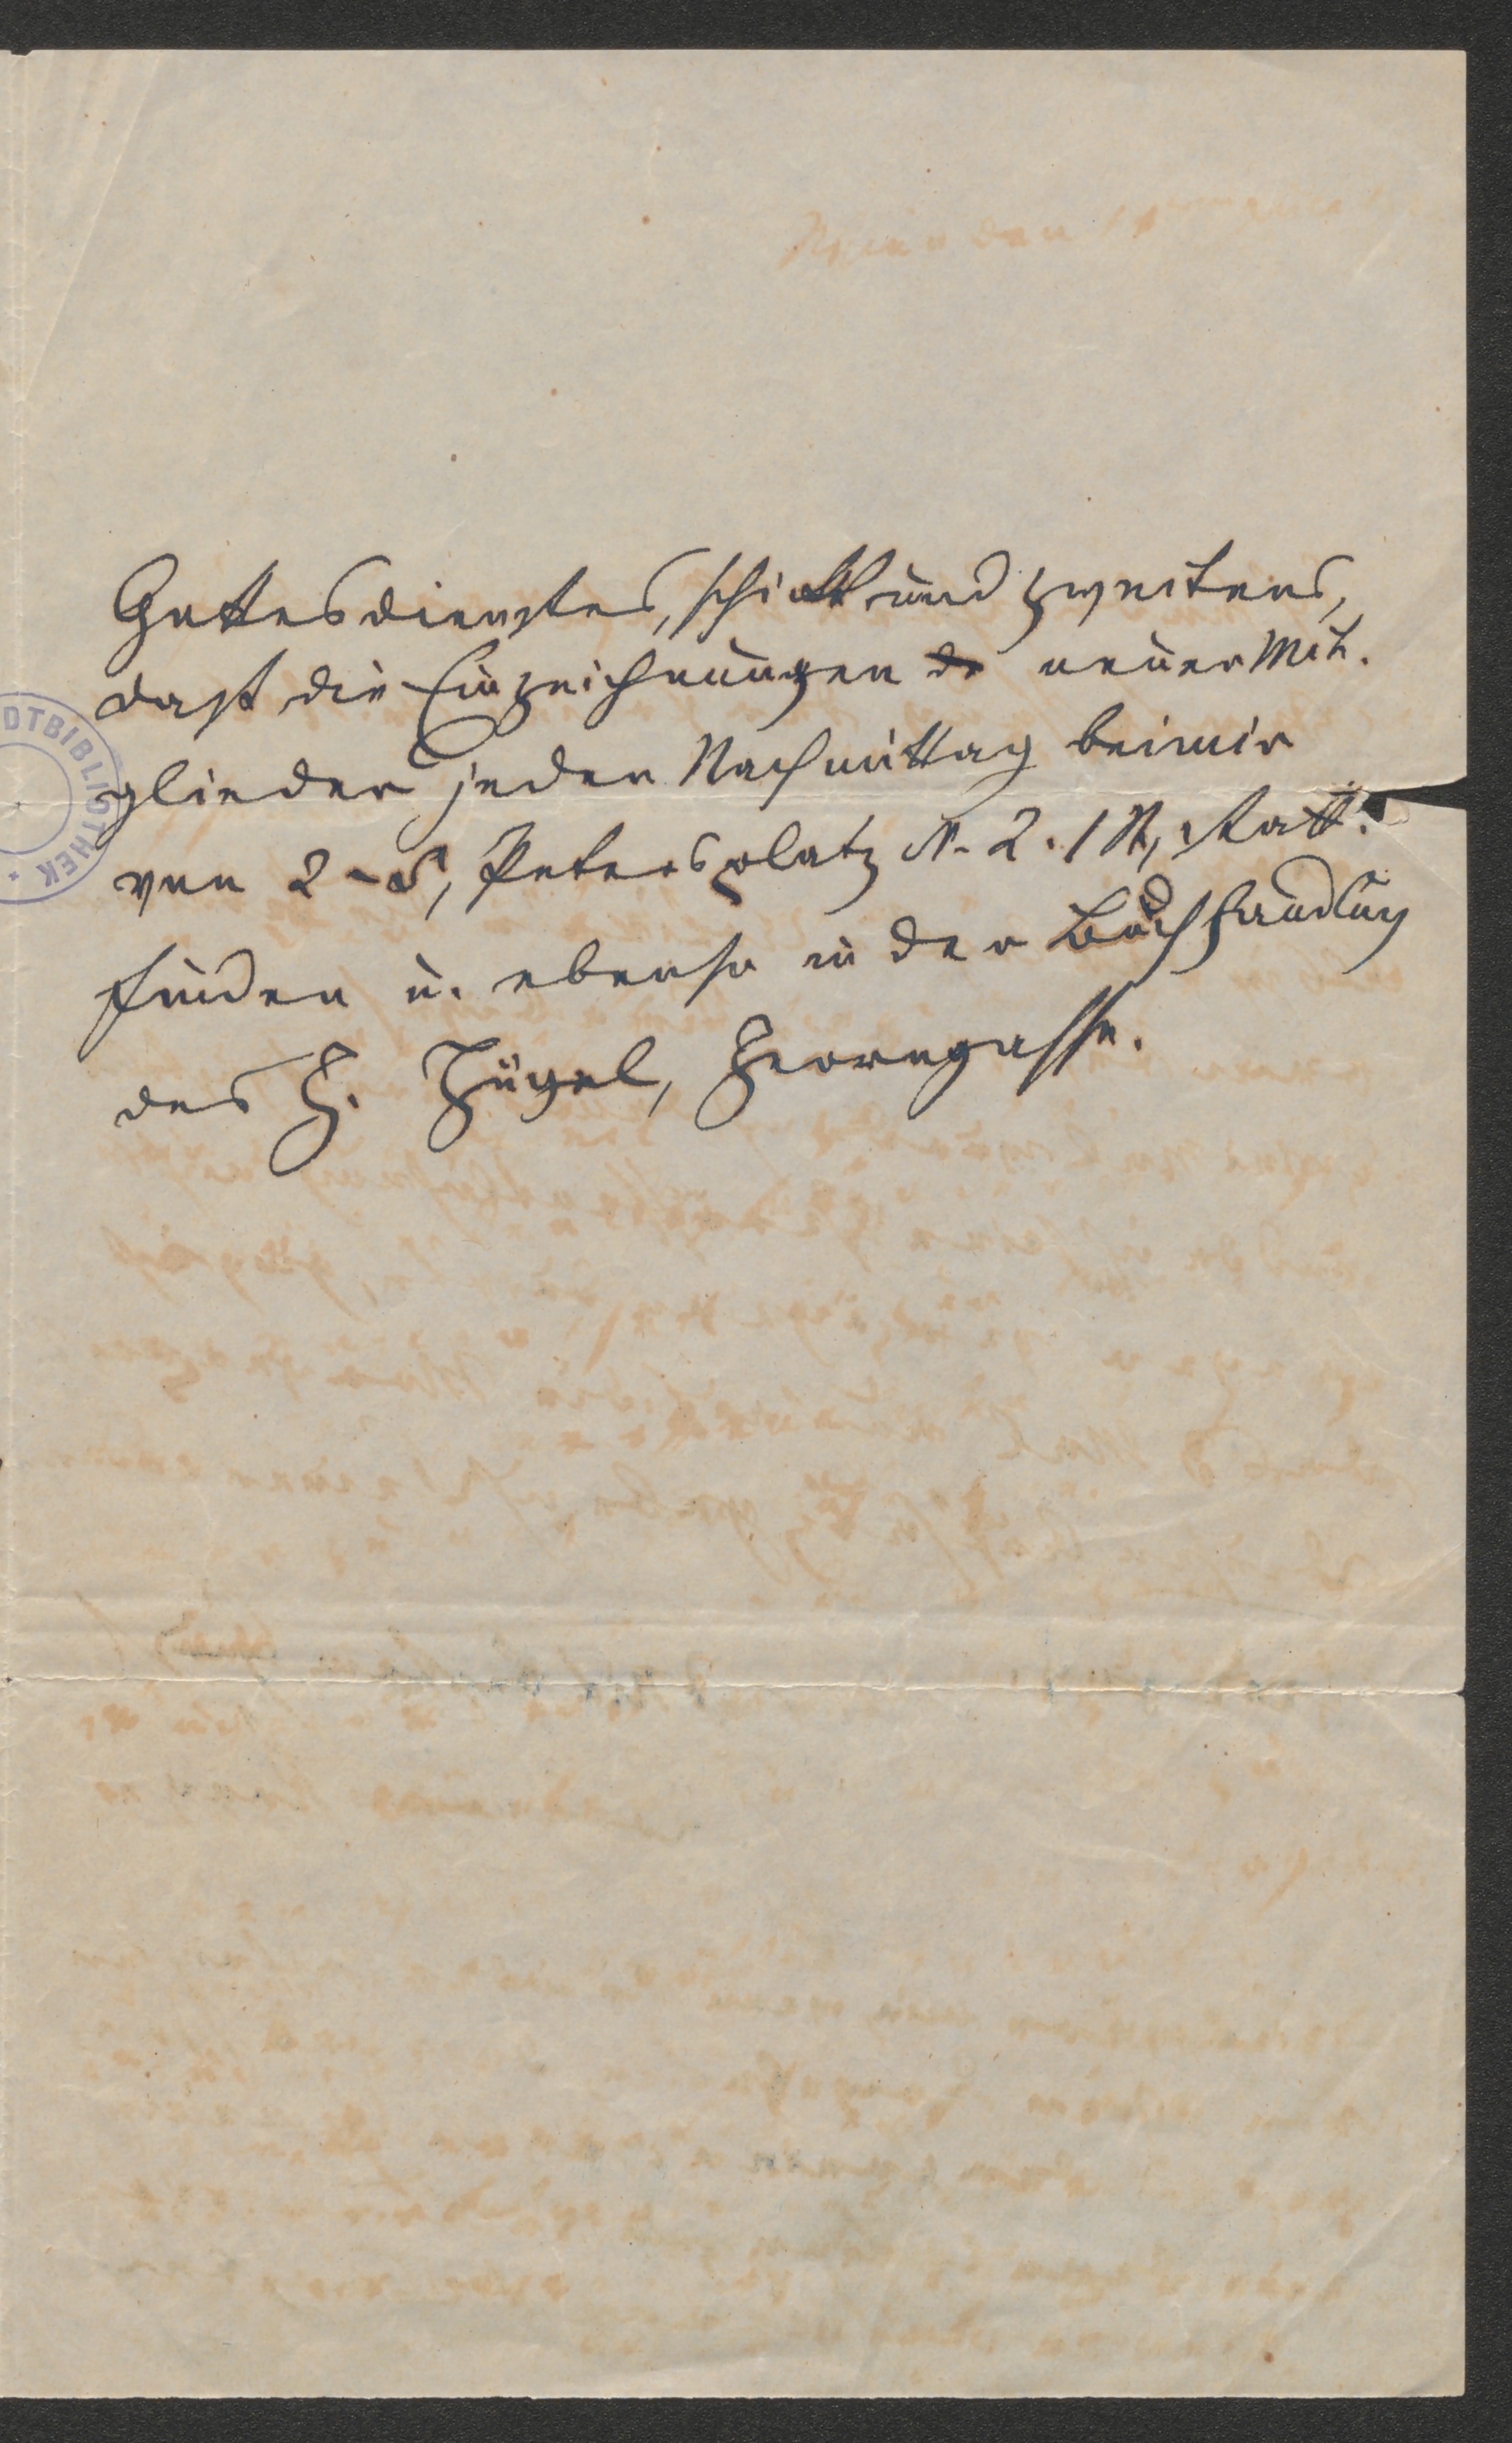 Gottesdienstes, schickt und zweitens,
daß die Einzeichnungen neuer Mit-
glieder jeden Nachmittag bei mir
von 2-5, Petersplatz N. 2. 1 St, statt-
finden u. ebenso in der Buchhandlung
des H. Hügel, Herrngasse.
DTBIBLIOTHEK